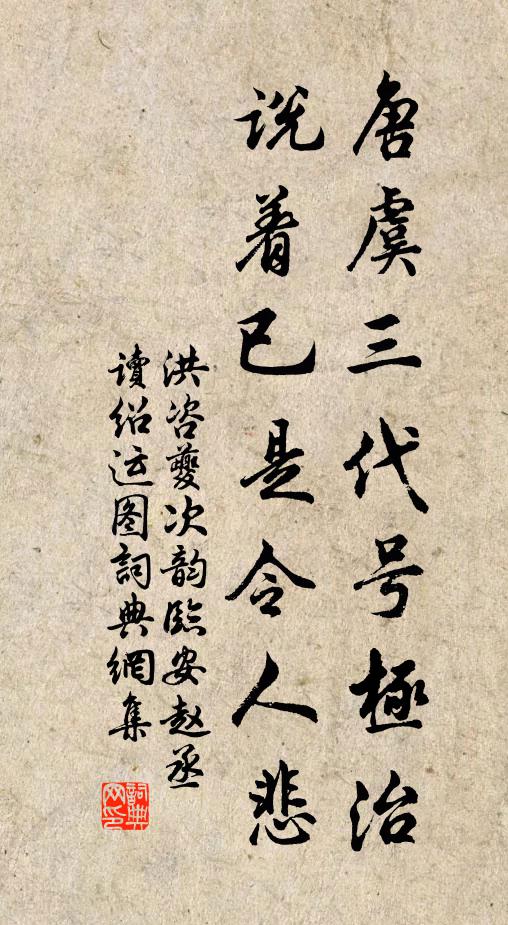 唐虞三代号極治
说着已是令人悲
洪咨夔次韵臨安赵丞
讀绍运图詞典網集
詞典网印